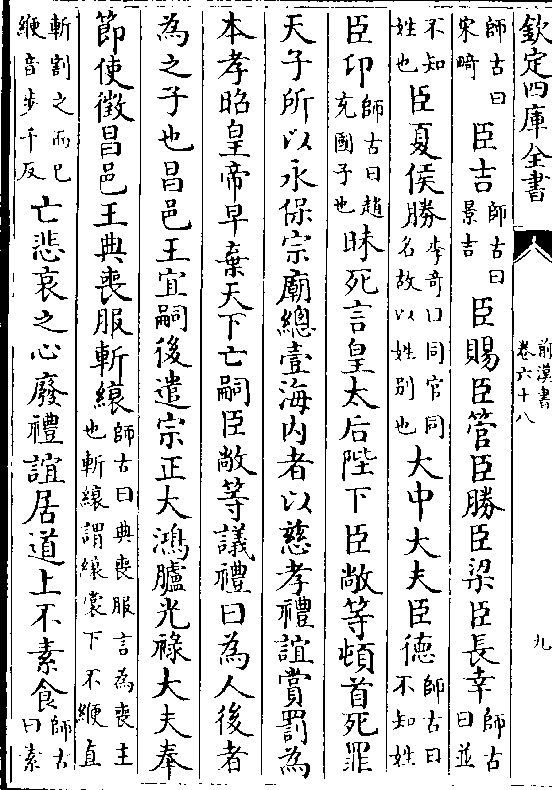 欽定四庫全書
前漢書
卷六十八
九
師古曰
宋畸
臣吉
師古曰
景吉
臣賜臣管臣勝臣梁臣長幸
師古
曰並
不知
姓也
臣夏侯勝
李奇曰同官同
名故以姓别也
大中大夫臣德
師古曰
不知姓
臣卬
師古曰趙
充國子也
昧死言皇太后陛下臣敞等頓首死罪
天子所以永保宗廟總壹海内者以慈孝禮誼賞罰為
本孝昭皇帝早棄天下亡嗣臣敞等議禮曰為人後者
為之子也昌邑王宜嗣後遣宗正大鴻臚光祿大夫奉
節使徵昌邑王典喪服斬縗
師古曰典喪服言為喪主
也斬縗謂縗裳下不緶直
斬割之而已
緶音步千反
亡悲哀之心廢禮誼居道上不素食
師古
曰素